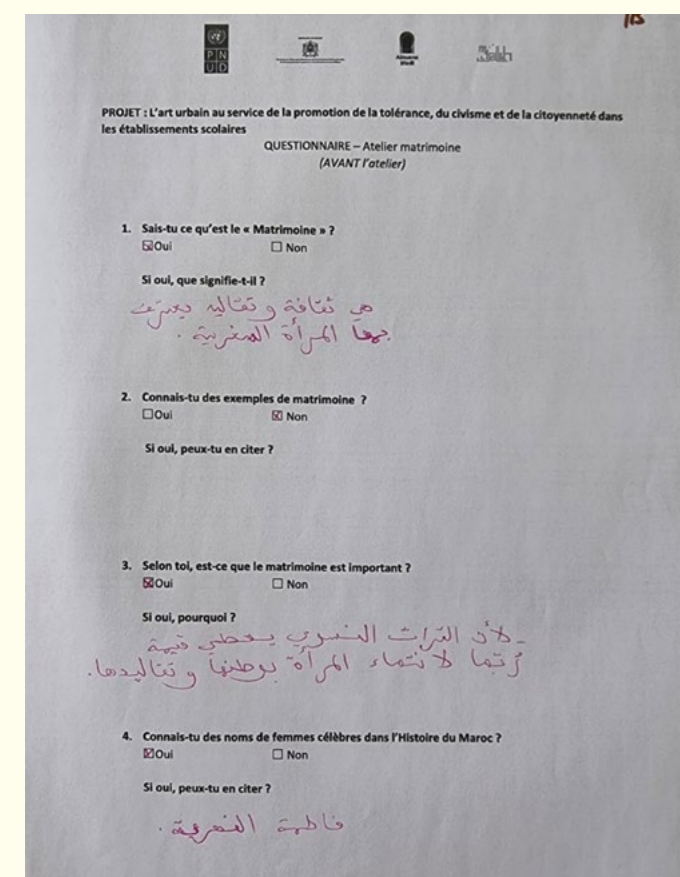 P N
U D
PROJET : L'art urbain au service de la promotion de la tolérance, du civisme et de la citoyenneté dans
les établissements scolaires
QUESTIONNAIRE – Atelier matrimoine
(AVANT l'atelier)
1. Sais-tu ce qu'est le « Matrimoine » ?
☒Oui ☐ Non
Si oui, que signifie-t-il ?
هي ثقافة و تقاليد يعترف
بها المرأة المغربية .
2. Connais-tu des exemples de matrimoine ?
☐Oui ☒ Non
Si oui, peux-tu en citer ?
3. Selon toi, est-ce que le matrimoine est important ?
☒Oui ☐ Non
Si oui, pourquoi ?
- لأن التراث النسوي يعطي قيمة
لانتماء المرأة بوطنها و تقاليدها.
4. Connais-tu des noms de femmes célèbres dans l'Histoire du Maroc ?
☒Oui ☐ Non
Si oui, peux-tu en citer ?
فاطمة الفهرية .